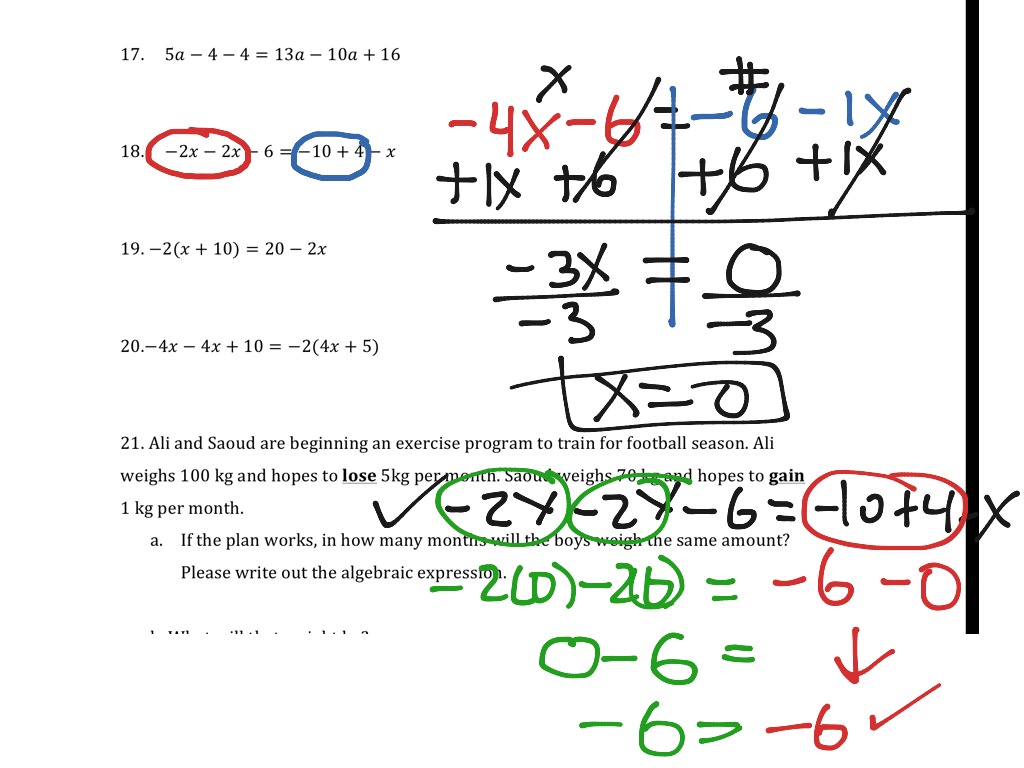 17. 5a − 4 − 4 = 13a − 10a + 16
x #
-4x -6 = -6 -1x
18. −2x − 2x − 6 = −10 + 4 − x
+1x +6 +6 +1x
19. −2(x + 10) = 20 − 2x
-3x = 0
-3 -3
20.−4x − 4x + 10 = −2(4x + 5)
x = 0
21. Ali and Saoud are beginning an exercise program to train for football season. Ali
weighs 100 kg and hopes to lose 5kg per month. Saoud weighs 70 kg and hopes to gain
1 kg per month.
✓ -2x -2x -6 = -10+4 -x
a. If the plan works, in how many months will the boys weigh the same amount?
Please write out the algebraic expression.
-2(0) -2(0) = -6 -0
0-6 = ↓
-6 = -6 ✓